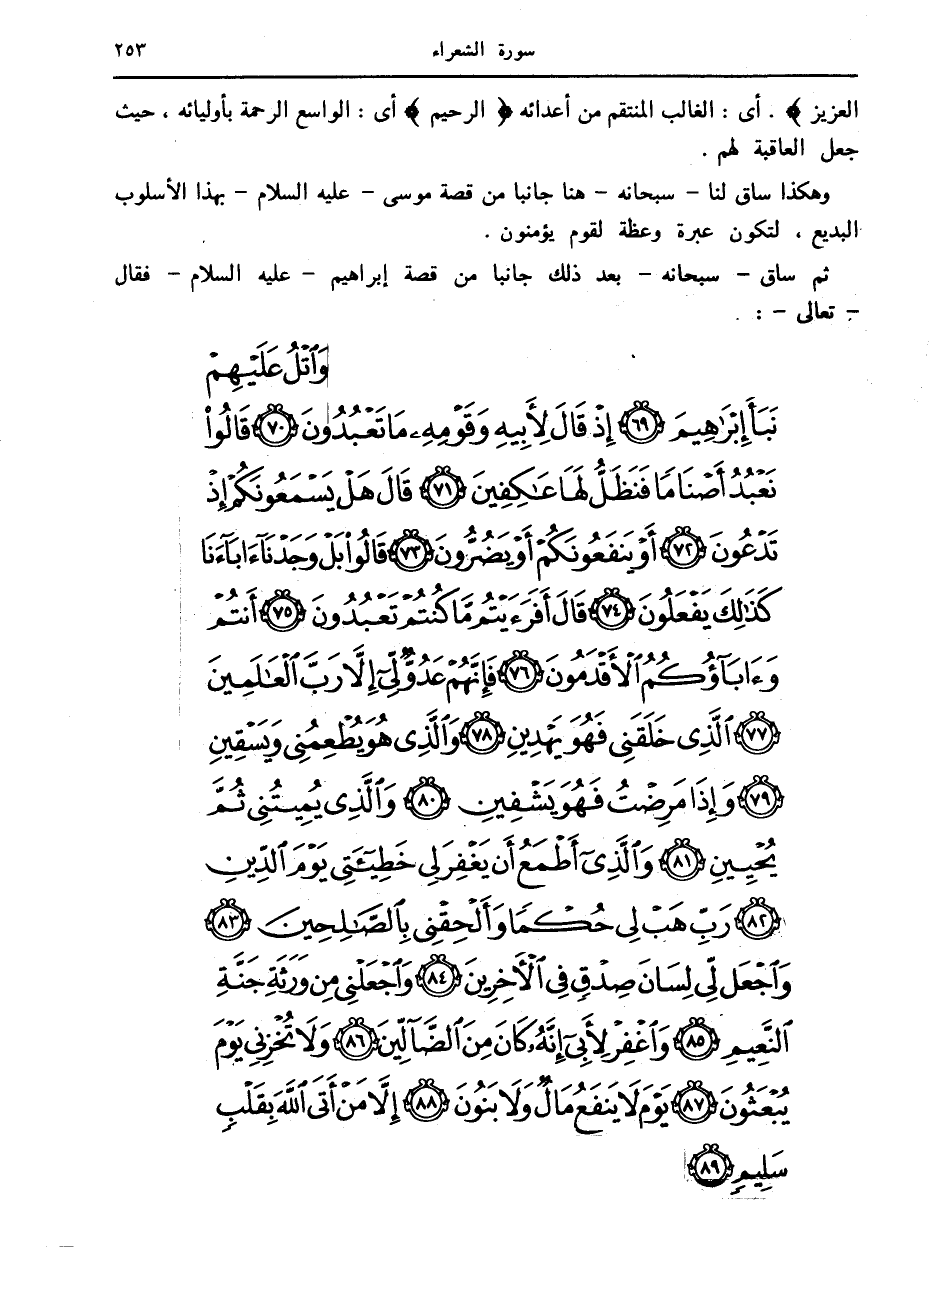 سورة الشعراء ٢٥٣
العزيز ﴾ . أى : الغالب المنتقم من أعدائه ﴿ الرحيم ﴾ أى : الواسع الرحمة بأوليائه ، حيث
جعل العاقبة لهم .
وهكذا ساق لنا – سبحانه – هنا جانبا من قصة موسى – عليه السلام – بهذا الأسلوب
البديع ، لتكون عبرة وعظة لقوم يؤمنون .
ثم ساق – سبحانه – بعد ذلك جانبا من قصة إبراهيم – عليه السلام – فقال
– تعالى – :
وَٱتْلُ عَلَيْهِمْ
نَبَأَ إِبْرَٰهِيمَ ﴿٦٩﴾ إِذْ قَالَ لِأَبِيهِ وَقَوْمِهِۦ مَا تَعْبُدُونَ ﴿٧٠﴾ قَالُوا۟
نَعْبُدُ أَصْنَامًا فَنَظَلُّ لَهَا عَٰكِفِينَ ﴿٧١﴾ قَالَ هَلْ يَسْمَعُونَكُمْ إِذْ
تَدْعُونَ ﴿٧٢﴾ أَوْ يَنفَعُونَكُمْ أَوْ يَضُرُّونَ ﴿٧٣﴾ قَالُوا۟ بَلْ وَجَدْنَآ ءَابَآءَنَا
كَذَٰلِكَ يَفْعَلُونَ ﴿٧٤﴾ قَالَ أَفَرَءَيْتُم مَّا كُنتُمْ تَعْبُدُونَ ﴿٧٥﴾ أَنتُمْ
وَءَابَآؤُكُمُ ٱلْأَقْدَمُونَ ﴿٧٦﴾ فَإِنَّهُمْ عَدُوٌّ لِّىٓ إِلَّا رَبَّ ٱلْعَٰلَمِينَ
﴿٧٧﴾ ٱلَّذِى خَلَقَنِى فَهُوَ يَهْدِينِ ﴿٧٨﴾ وَٱلَّذِى هُوَ يُطْعِمُنِى وَيَسْقِينِ
﴿٧٩﴾ وَإِذَا مَرِضْتُ فَهُوَ يَشْفِينِ ﴿٨٠﴾ وَٱلَّذِى يُمِيتُنِى ثُمَّ
يُحْيِينِ ﴿٨١﴾ وَٱلَّذِىٓ أَطْمَعُ أَن يَغْفِرَ لِى خَطِيٓـَٔتِى يَوْمَ ٱلدِّينِ
﴿٨٢﴾ رَبِّ هَبْ لِى حُكْمًا وَأَلْحِقْنِى بِٱلصَّٰلِحِينَ ﴿٨٣﴾
وَٱجْعَل لِّى لِسَانَ صِدْقٍ فِى ٱلْأَخِرِينَ ﴿٨٤﴾ وَٱجْعَلْنِى مِن وَرَثَةِ جَنَّةِ
ٱلنَّعِيمِ ﴿٨٥﴾ وَٱغْفِرْ لِأَبِىٓ إِنَّهُۥ كَانَ مِنَ ٱلضَّآلِّينَ ﴿٨٦﴾ وَلَا تُخْزِنِى يَوْمَ
يُبْعَثُونَ ﴿٨٧﴾ يَوْمَ لَا يَنفَعُ مَالٌ وَلَا بَنُونَ ﴿٨٨﴾ إِلَّا مَنْ أَتَى ٱللَّهَ بِقَلْبٍ
سَلِيمٍ ﴿٨٩﴾